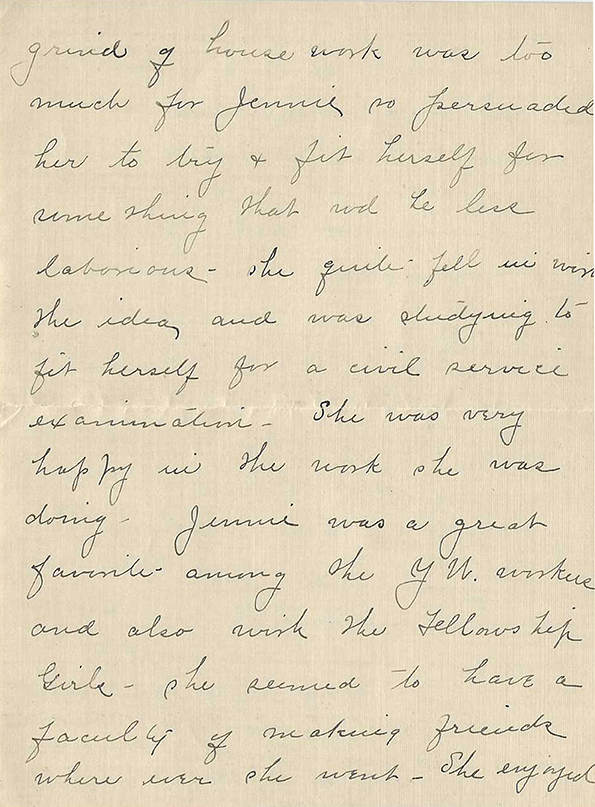 grind of house work was too
much for Jennie, so persuaded
her to try & fit herself for
something that wd be less
laborious - she quite fell in with
the idea, and was studying to
fit herself for a civil service
examination - She was very
happy in the work she was
doing - Jennie was a great
favorite among the Y W. workers
and also with the Fellowship
Girls - she seemed to have a
faculty of making friends
where ever she went - She enjoyed